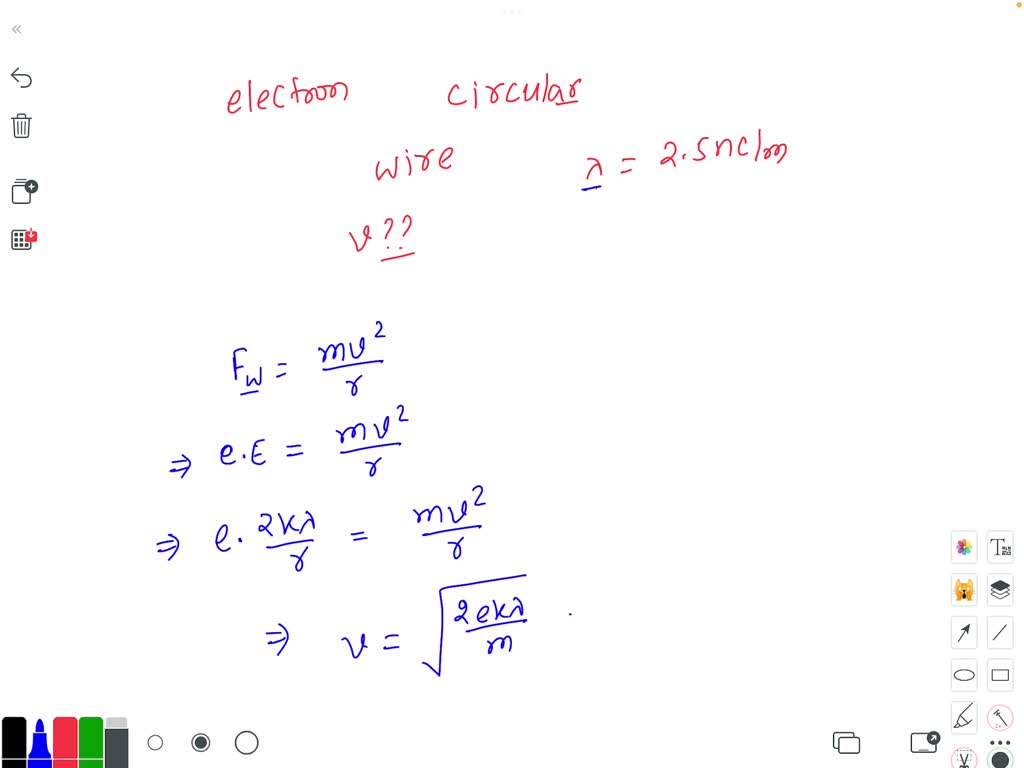 electron circular
wire λ = 2.5nC/m
v??
F_w = mv²/r
⇒ e.E = mv²/r
⇒ e. 2kλ/r = mv²/r
⇒ v = √(2ekλ/m)